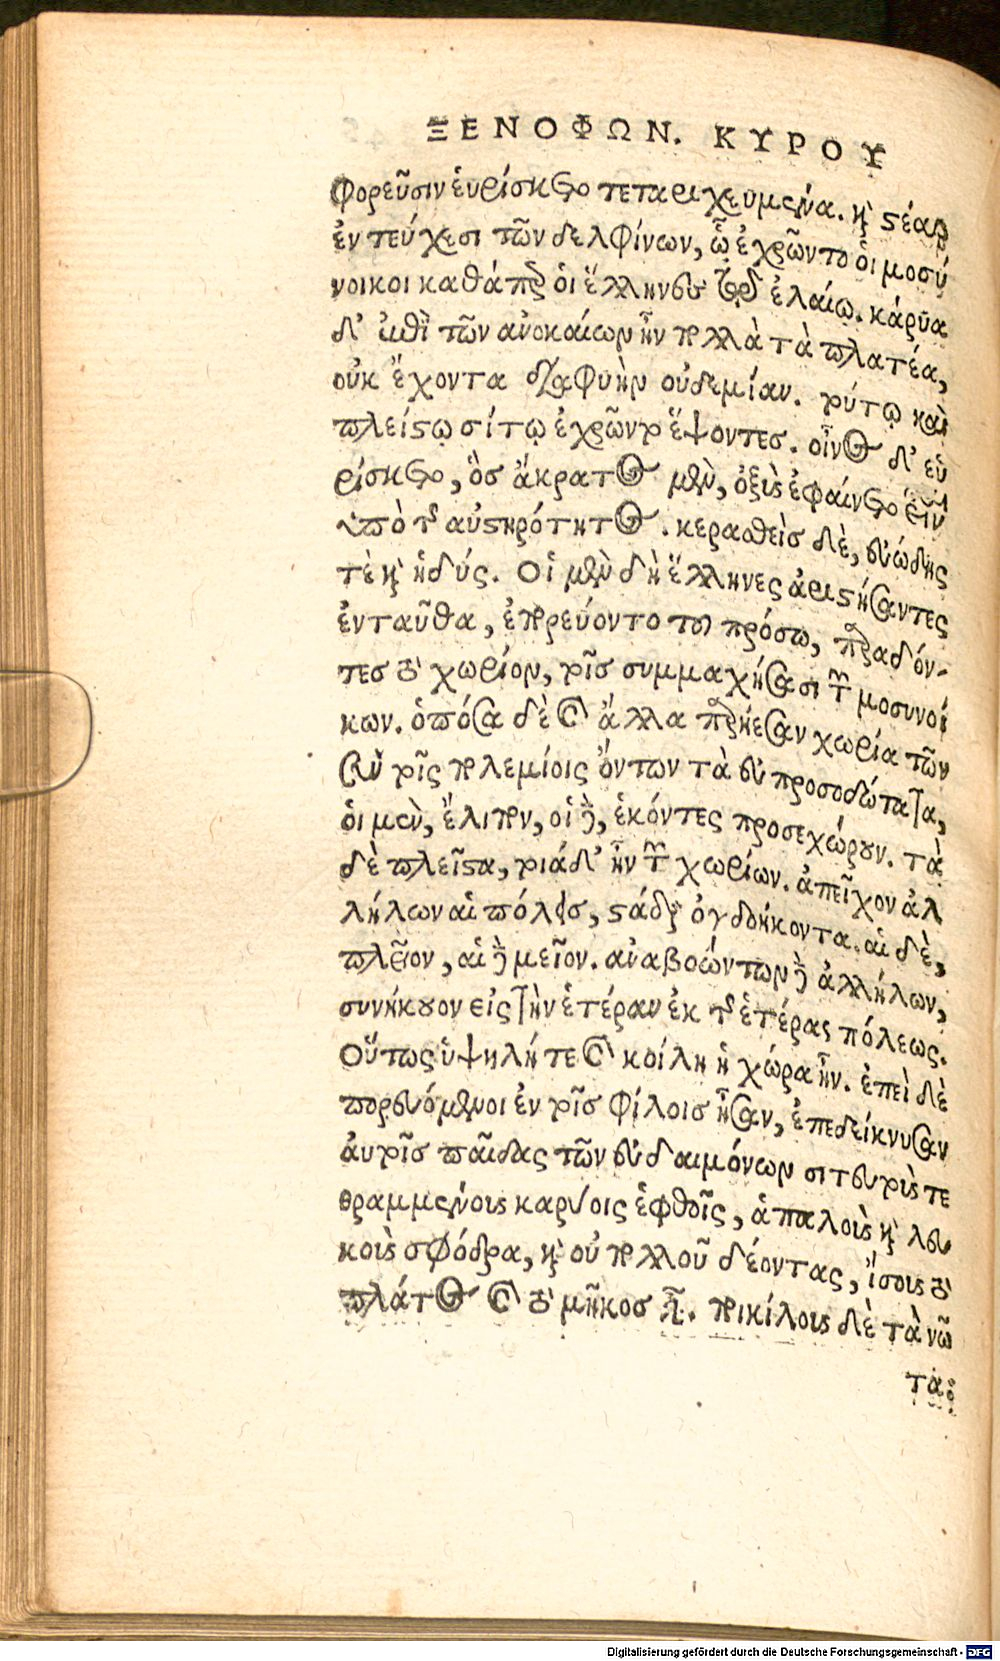 ΞΕΝΟΦΩΝ. ΚΥΡΟΥ
φορεῦσιν εὑρίσκετο τεταριχευμένα. καὶ στέαρ
ἐν τεύχεσι τῶν δελφίνων, ᾧ ἐχρῶντο οἱ μοσύ
νοικοι καθάπερ οἱ ἕλληνες τῷ ἐλαίῳ. κάρυα
δ' ἐπὶ τῶν ἀνοκαίων ἦν πολλὰ τὰ πλατέα,
οὐκ ἔχοντα διαφυὴν οὐδεμίαν. τούτῳ καὶ
πλείστῳ σίτῳ ἐχρῶντο ἕψοντες. οἶνος δ' εὑ
ρίσκετο, ὃς ἄκρατος μὲν, ὀξὺς ἐφαίνετο εἶναι
ὑπὸ τῆς αὐστηρότητος. κερασθεὶς δὲ, εὐώδης
τὲ καὶ ἡδύς. Οἱ μὲν δὴ ἕλληνες ἀριστήσαντες
ἐνταῦθα, ἐπορεύοντο του πρόσω, παραδόν-
τες τὸ χωρίον, τοῖς συμμαχήσασι τῶν μοσυνοί
κων. ὁπόσα δὲ καὶ ἄλλα παρήεσαν χωρία τῶν
σὺν τοῖς πολεμίοις ὄντων τὰ εὐπροσοδώτατα,
οἱ μὲν, ἔλιπον, οἱ δὲ, ἑκόντες προσεχώρουν. τὰ
δὲ πλεῖστα, τοιάδ' ἦν τῶν χωρίων. ἀπεῖχον ἀλ
λήλων αἱ πόλεις, στάδια ὀγδοήκοντα. αἱ δὲ,
πλεῖον, αἱ δὲ μεῖον. ἀναβοώντων δὲ ἀλλήλων,
συνήκουον εἰς τὴν ἑτέραν ἐκ τῆς ἑτέρας πόλεως.
Οὕτως ὑψηλή τε καὶ κοίλη ἡ χώρα ἦν. ἐπεὶ δὲ
πορευόμενοι ἐν τοῖς φίλοις ἦσαν, ἐπεδείκνυσαν
αὐτοῖς παῖδας τῶν εὐδαιμόνων σιτευτοὺς τε
θραμμένους καρύοις ἑφθοῖς, ἁπαλοὺς καὶ λευ
κοὺς σφόδρα, καὶ οὐ πολλοῦ δέοντας, ἴσους τὸ
πλάτος καὶ τὸ μῆκος εἶναι. ποικίλους δὲ τὰ νῶ
τα: